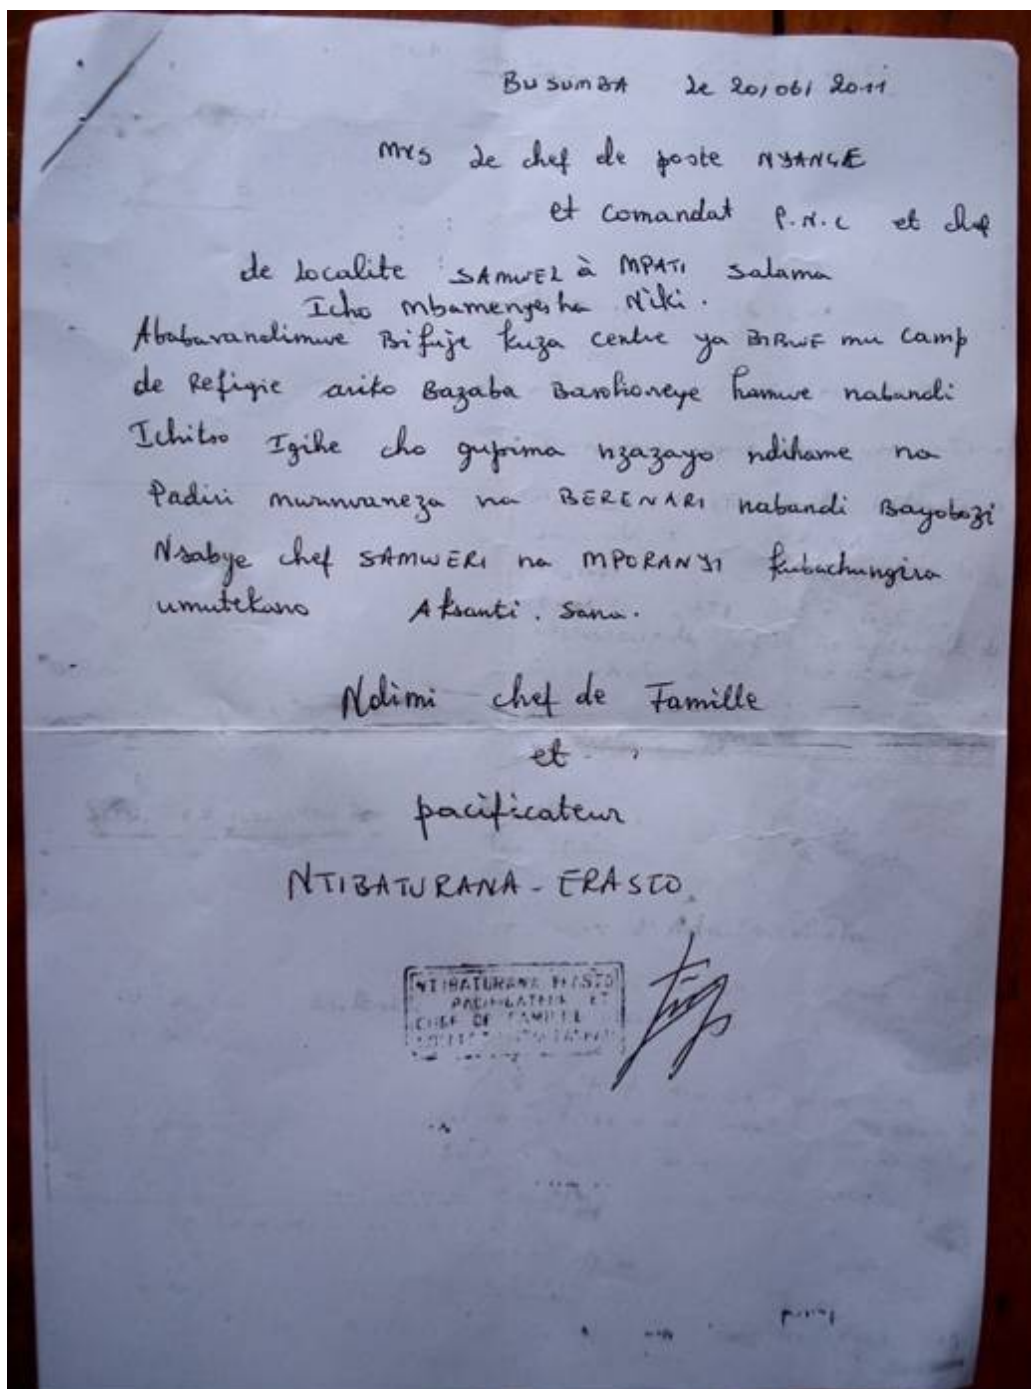 BUSUMBA le 20/06/2011
Mrs le chef de poste NYANGE
et comandat P.N.C et chef
de Localite SAMWEL à MPATI salama
Icho mbamenyesha Niki.
Ababavandimwe Bifuje kuza centre ya BIBWE mu camp
de Refigie ariko Bazaba Barohoneye hamwe nabandi
Ichitso Igihe cho gupima nzazayo ndihame na
Padiri mwunvaneza na BERENARI nabandi Bayobozi
Nsabye chef SAMWERI na MPORANYI kubachungira
umutekano Aksanti. Sana.
Ndimi chef de Famille
et
pacificateur
NTIBATURANA - ERASTO
NTIBATURANA ERASTO
PACIFICATEUR ET
CHEF DE FAMILLE